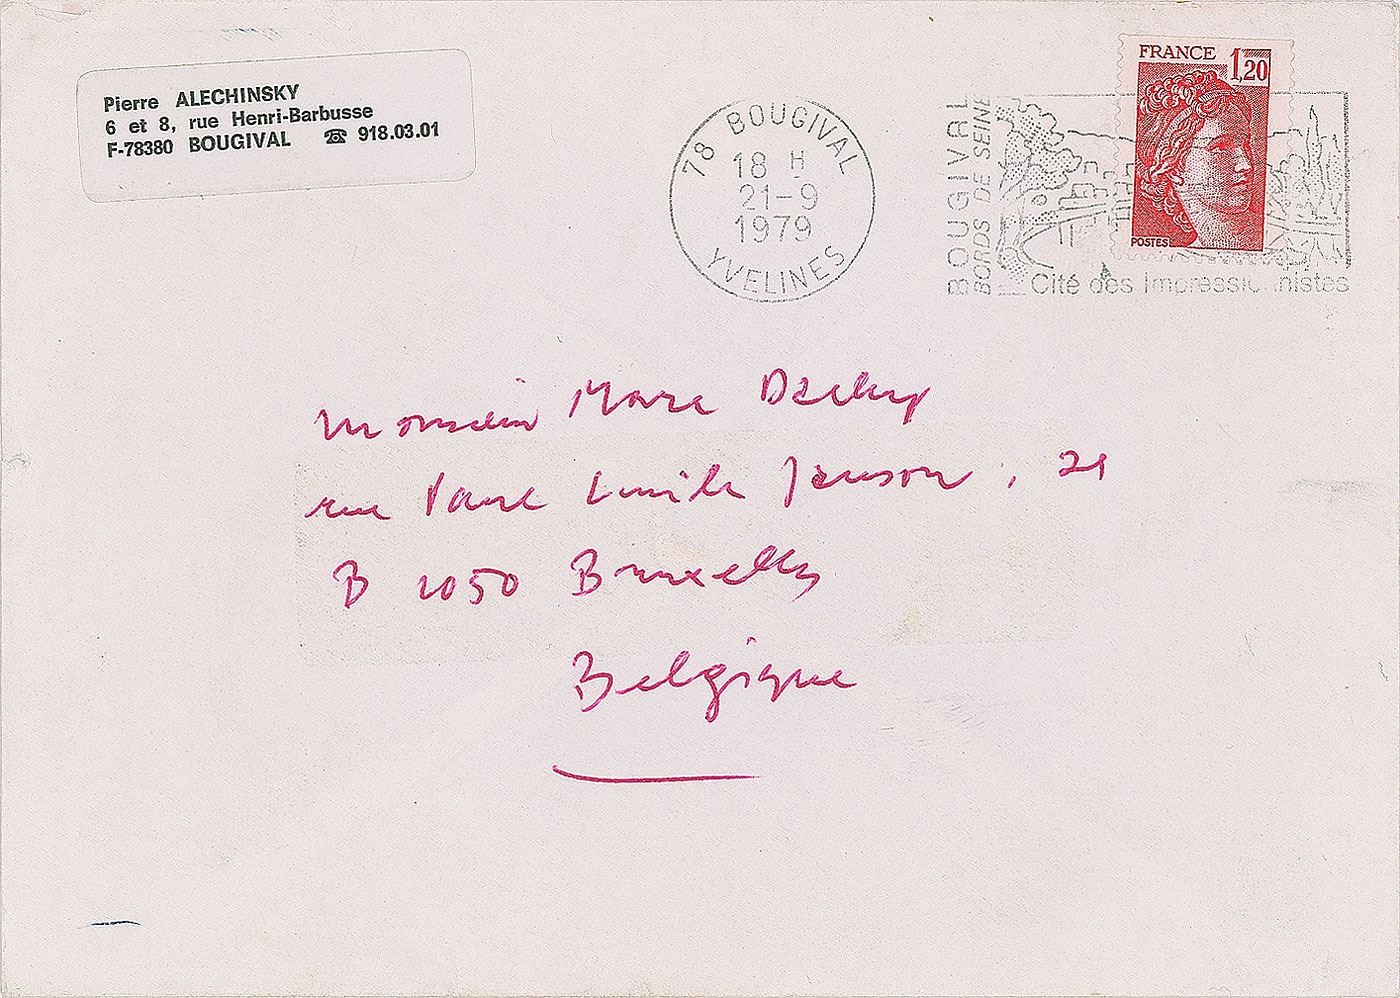 Pierre ALECHINSKY
6 et 8, rue Henri-Barbusse
F-78380 BOUGIVAL ☎ 918.03.01
78 BOUGIVAL
18 H
21-9
1979
YVELINES
BOUGIVAL
BORDS DE SEINE
Cité des Impressionnistes
FRANCE 1,20
POSTES
Monsieur Marc Dachy
rue Paul Emile Janson, 21
B 1050 Bruxelles
Belgique